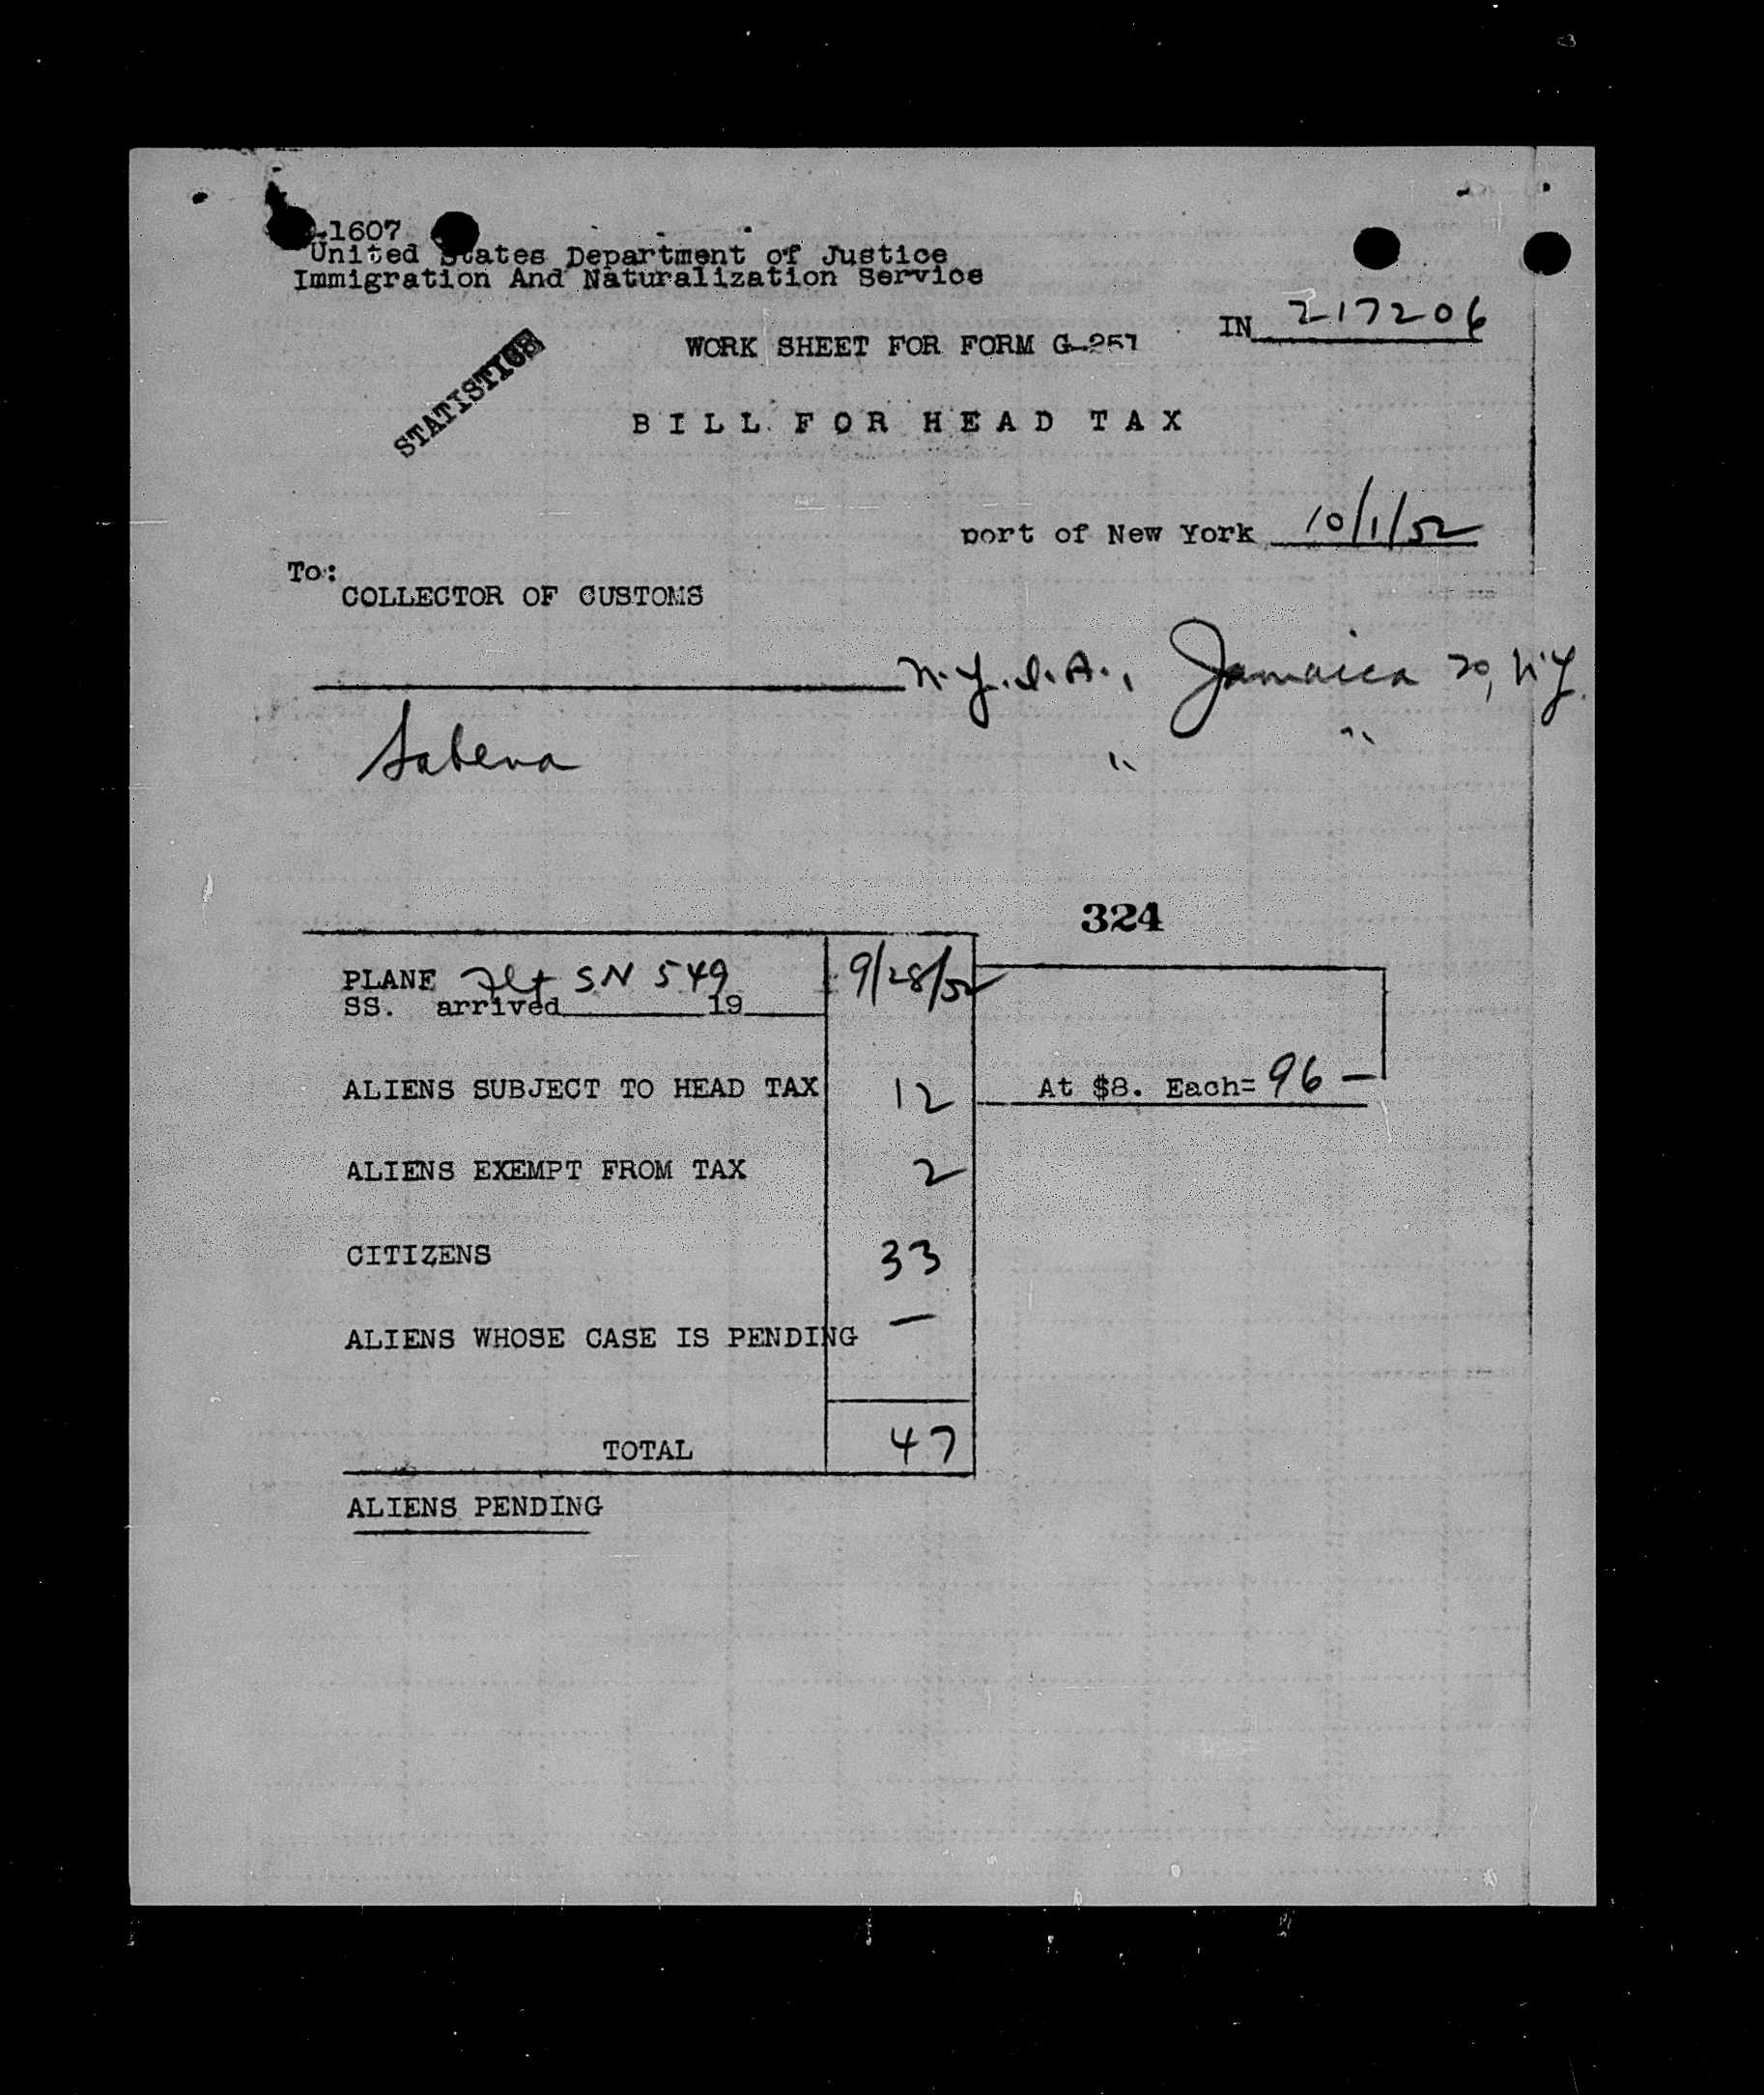 -1607
United States Department of Justice
Immigration And Naturalization Service
IN 217206
WORK SHEET FOR FORM G-251
STATISTICS
BILL FOR HEAD TAX
port of New York 10/1/52
To:
COLLECTOR OF CUSTOMS
N.Y.I.A., Jamaica 30, N.Y.
Sabena " "
324
PLANE Flt SN 549 9/28/52
SS. arrived 19
ALIENS SUBJECT TO HEAD TAX 12 At $8. Each= 96 —
ALIENS EXEMPT FROM TAX 2
CITIZENS 33
ALIENS WHOSE CASE IS PENDING —
TOTAL 47
ALIENS PENDING